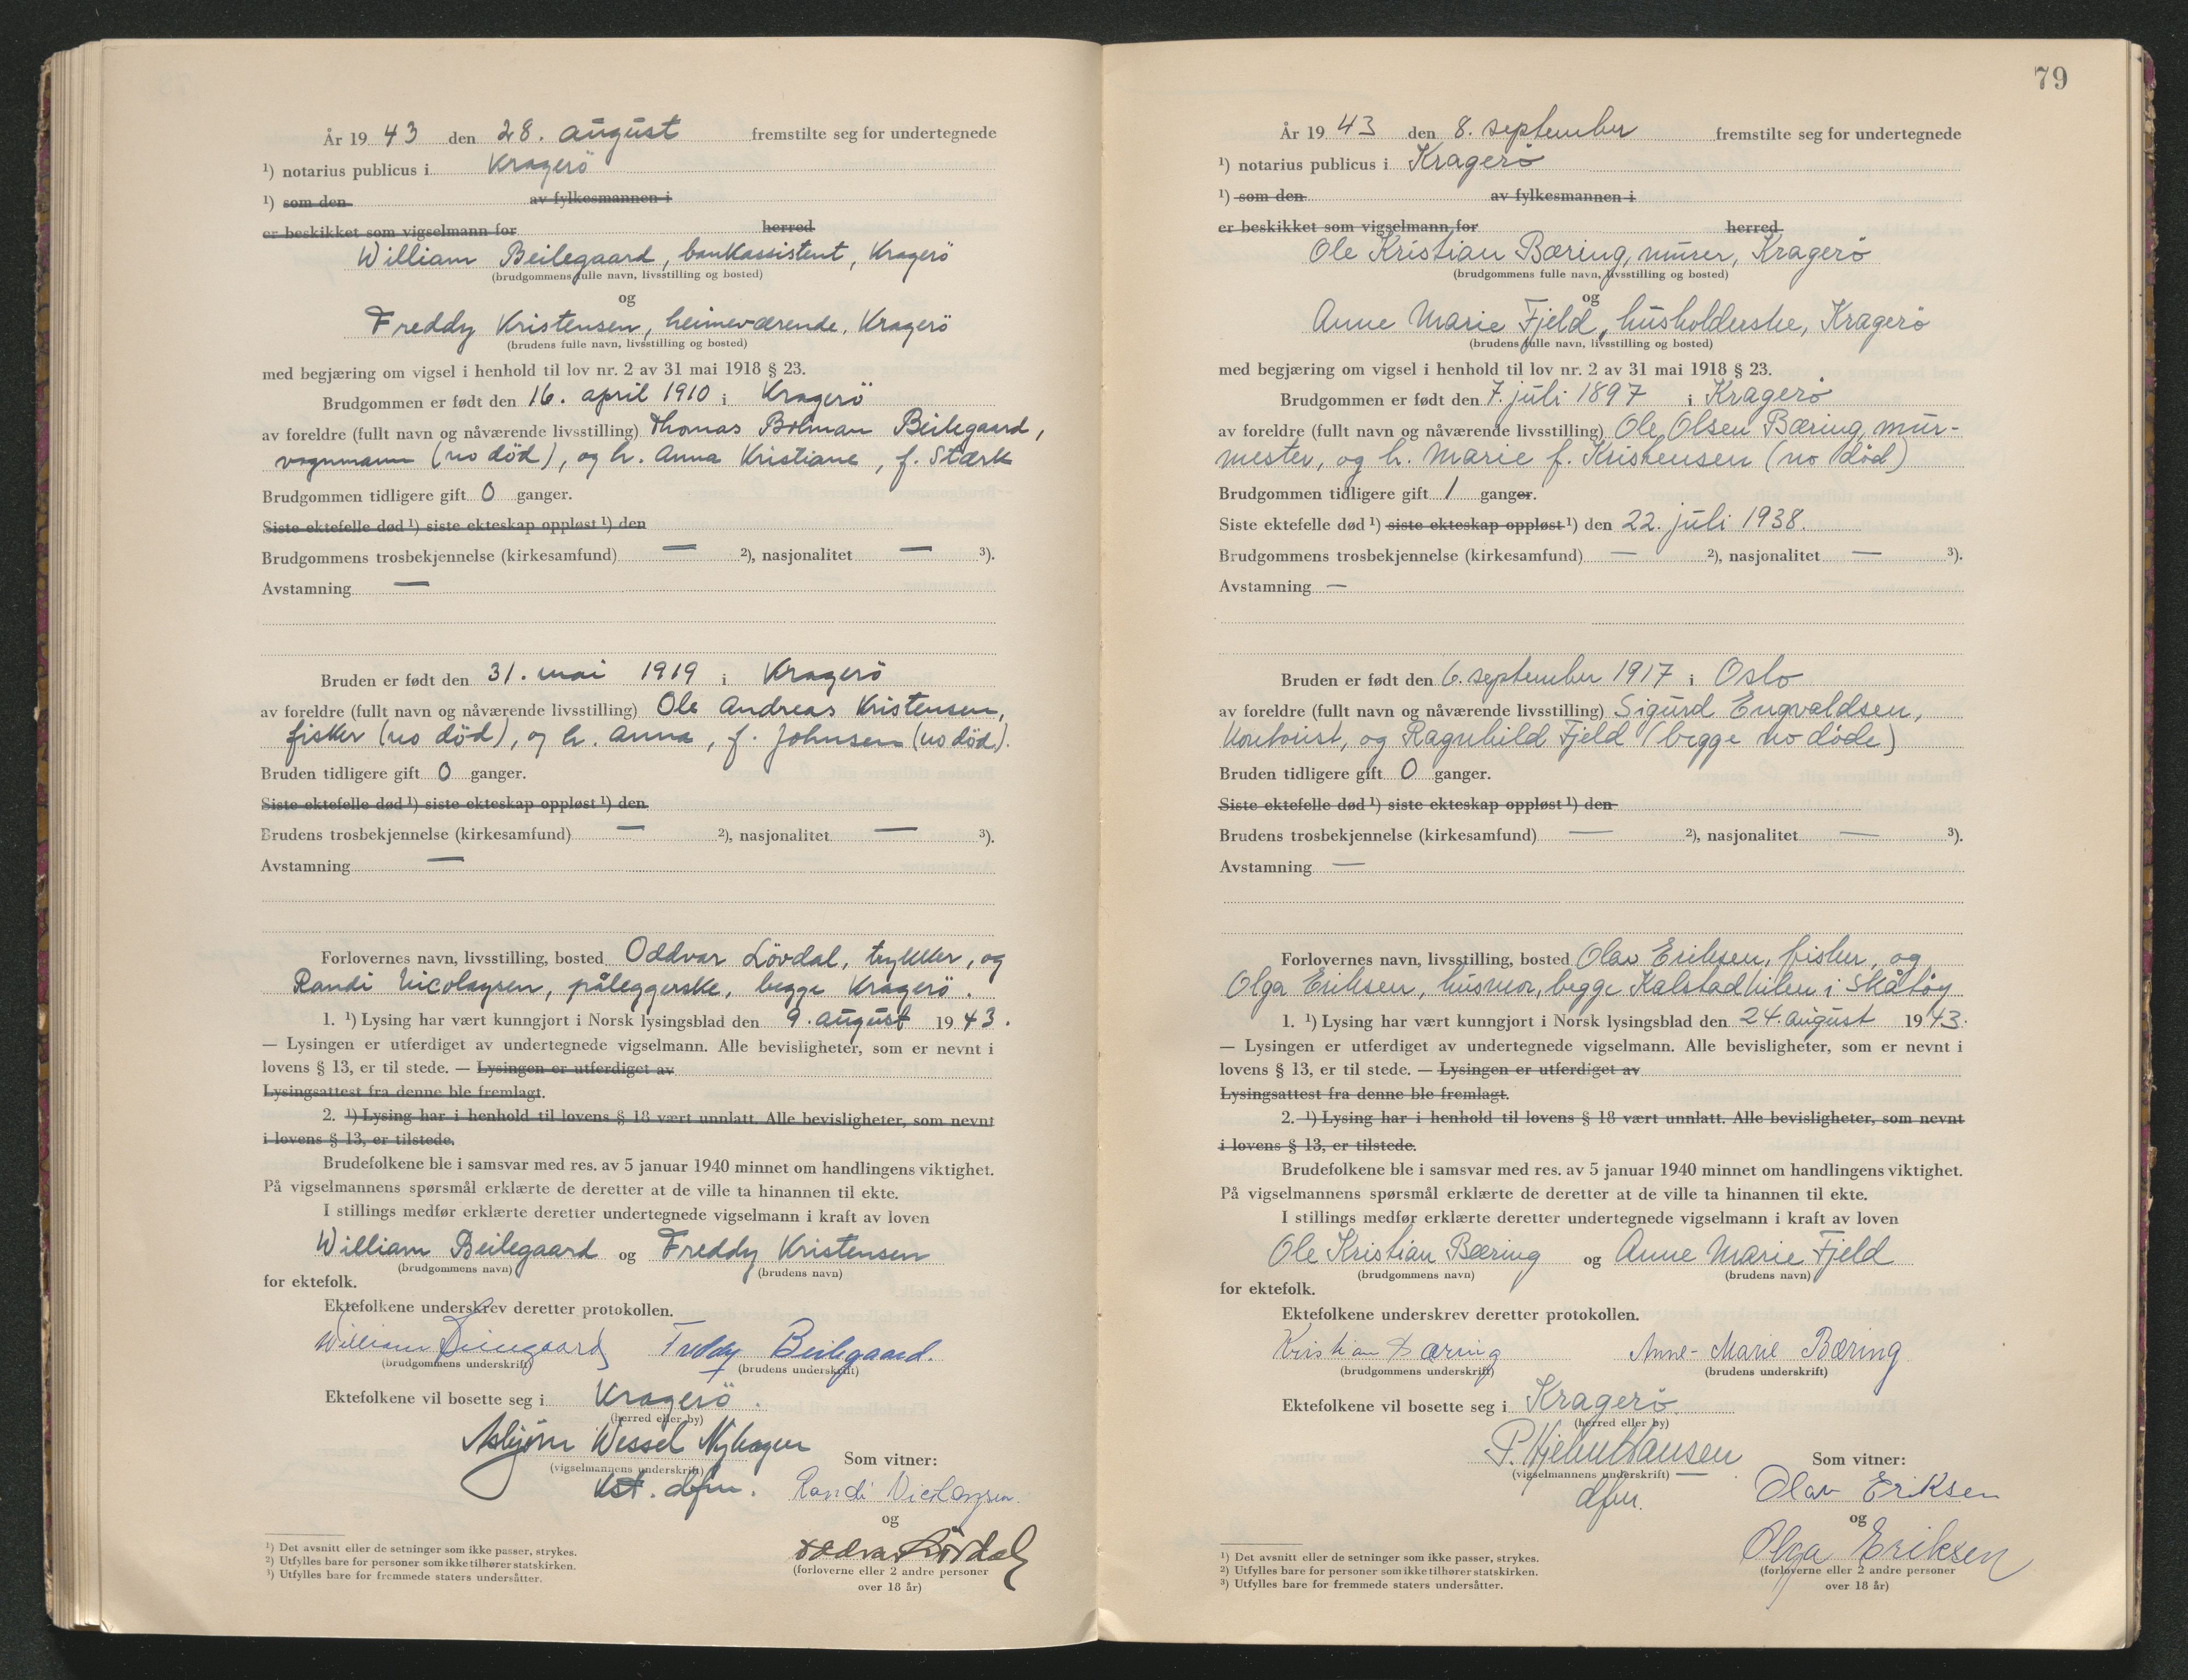 År 19 43 den 28. august fremstilte seg for undertegnede
¹) notarius publicus i Kragerö
¹) som den av fylkesmannen i
er beskikket som vigselmann for herred
William Beilegaard, bankassistent, Kragerö
(brudgommens fulle navn, livsstilling og bosted)
og
Freddy Kristensen, heimeværende, Kragerö
(brudens fulle navn, livsstilling og bosted)
med begjæring om vigsel i henhold til lov nr. 2 av 31 mai 1918 § 23.
Brudgommen er født den 16. april 1910 i Kragerö
av foreldre (fullt navn og nåværende livsstilling) Thomas Bolman Beilegaard,
vognmann (no död), og h. Anna Kristiane, f. Stærk
Brudgommen tidligere gift 0 ganger.
Siste ektefelle død ¹) siste ekteskap oppløst ¹) den
Brudgommens trosbekjennelse (kirkesamfund) — ²), nasjonalitet — ³).
Avstamning —
Bruden er født den 31. mai 1919 i Kragerö
av foreldre (fullt navn og nåværende livsstilling) Ole Andreas Kristensen,
fisker (no död), og h. Anna, f. Johnsen (no död).
Bruden tidligere gift 0 ganger.
Siste ektefelle død ¹) siste ekteskap oppløst ¹) den
Brudens trosbekjennelse (kirkesamfund) — ²), nasjonalitet — ³).
Avstamning —
Forlovernes navn, livsstilling, bosted Oddvar Lövdal, trykker, og
Randi Nicolaysen, påleggerske, begge Kragerö.
1. ¹) Lysing har vært kunngjort i Norsk lysingsblad den 9. august 19 43.
— Lysingen er utferdiget av undertegnede vigselmann. Alle bevisligheter, som er nevnt i
lovens § 13, er til stede. — Lysingen er utferdiget av
Lysingsattest fra denne ble fremlagt.
2. ¹) Lysing har i henhold til lovens § 18 vært unnlatt. Alle bevisligheter, som nevnt
i lovens § 13, er tilstede.
Brudefolkene ble i samsvar med res. av 5 januar 1940 minnet om handlingens viktighet.
På vigselmannens spørsmål erklærte de deretter at de ville ta hinannen til ekte.
I stillings medfør erklærte deretter undertegnede vigselmann i kraft av loven
William Beilegaard og Freddy Kristensen
(brudgommens navn) (brudens navn)
for ektefolk.
Ektefolkene underskrev deretter protokollen.
William Beilegaard Freddy Beilegaard.
(brudgommens underskrift) (brudens underskrift)
Ektefolkene vil bosette seg i Kragerö.
(herred eller by)
Asbjörn Wessel Nyhagen
(vigselmannens underskrift)
kst. dfm.
Som vitner:
Randi Nicolaysen.
og
Oddvar Lövdal
(forloverne eller 2 andre personer
over 18 år)
¹) Det avsnitt eller de setninger som ikke passer, strykes.
²) Utfylles bare for personer som ikke tilhører statskirken.
³) Utfylles bare for fremmede staters undersåtter.
79
År 19 43 den 8. september fremstilte seg for undertegnede
¹) notarius publicus i Kragerø
¹) som den av fylkesmannen i
er beskikket som vigselmann for herred
Ole Kristian Bæring, murer, Kragerø
(brudgommens fulle navn, livsstilling og bosted)
og
Anne Marie Fjeld, husholderske, Kragerø
(brudens fulle navn, livsstilling og bosted)
med begjæring om vigsel i henhold til lov nr. 2 av 31 mai 1918 § 23.
Brudgommen er født den 7. juli 1897 i Kragerø
av foreldre (fullt navn og nåværende livsstilling) Ole Olsen Bæring, mur-
mester, og h. Marie f. Kristensen (no død)
Brudgommen tidligere gift 1 ganger.
Siste ektefelle død ¹) siste ekteskap oppløst ¹) den 22. juli 1938.
Brudgommens trosbekjennelse (kirkesamfund) — ²), nasjonalitet — ³).
Avstamning —
Bruden er født den 6. september 1917 i Oslo
av foreldre (fullt navn og nåværende livsstilling) Sigurd Engvaldsen,
kontorist, og Ragnhild Fjeld (begge no døde)
Bruden tidligere gift 0 ganger.
Siste ektefelle død ¹) siste ekteskap oppløst ¹) den
Brudens trosbekjennelse (kirkesamfund) — ²), nasjonalitet — ³).
Avstamning —
Forlovernes navn, livsstilling, bosted Olav Eriksen, fisker, og
Olga Eriksen, husmor, begge Kalstadkilen i Skåtøy
1. ¹) Lysing har vært kunngjort i Norsk lysingsblad den 24. august 19 43.
— Lysingen er utferdiget av undertegnede vigselmann. Alle bevisligheter, som er nevnt i
lovens § 13, er til stede. — Lysingen er utferdiget av
Lysingsattest fra denne ble fremlagt.
2. ¹) Lysing har i henhold til lovens § 18 vært unnlatt. Alle bevisligheter, som nevnt
i lovens § 13, er tilstede.
Brudefolkene ble i samsvar med res. av 5 januar 1940 minnet om handlingens viktighet.
På vigselmannens spørsmål erklærte de deretter at de ville ta hinannen til ekte.
I stillings medfør erklærte deretter undertegnede vigselmann i kraft av loven
Ole Kristian Bæring og Anne Marie Fjeld
(brudgommens navn) (brudens navn)
for ektefolk.
Ektefolkene underskrev deretter protokollen.
Kristian Bæring Anne-Marie Bæring
(brudgommens underskrift) (brudens underskrift)
Ektefolkene vil bosette seg i Kragerø.
(herred eller by)
P. Hjelm Hansen
(vigselmannens underskrift)
dfm.
Som vitner:
Olav Eriksen
og
Olga Eriksen
(forloverne eller 2 andre personer
over 18 år)
¹) Det avsnitt eller de setninger som ikke passer, strykes.
²) Utfylles bare for personer som ikke tilhører statskirken.
³) Utfylles bare for fremmede staters undersåtter.